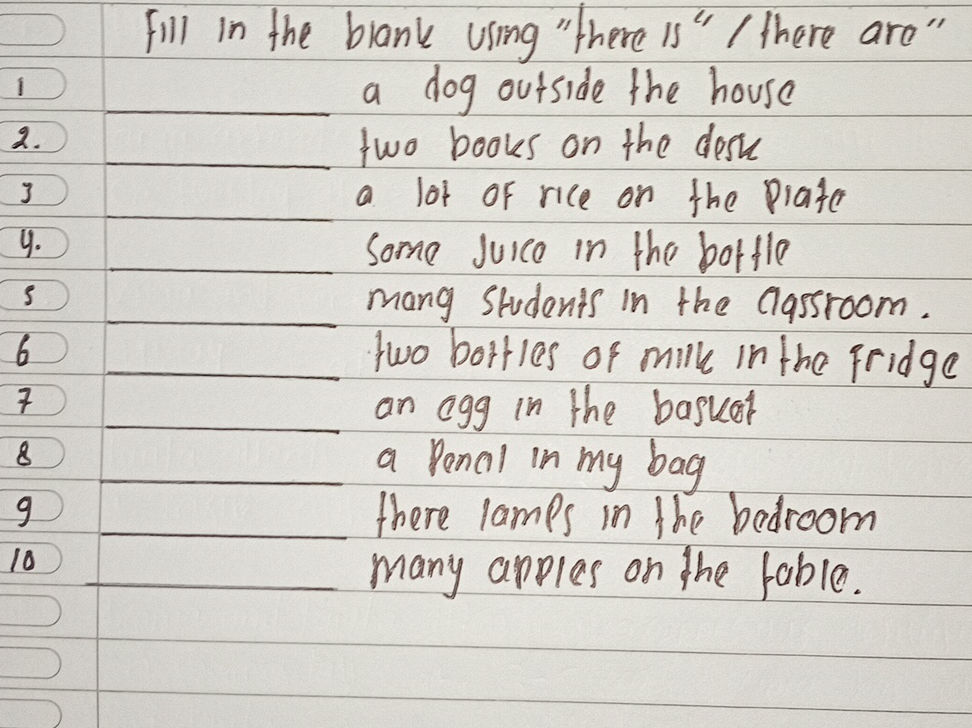 Fill in the blank using "there is" / there are"
1 ________ a dog outside the house
2. ________ two books on the desk
3 ________ a lot of rice on the plate
4. ________ some juice in the bottle
5 ________ many students in the classroom.
6 ________ two bottles of milk in the fridge
7 ________ an egg in the basket
8 ________ a pencil in my bag
9 ________ there lamps in the bedroom
10 ________ many apples on the table.